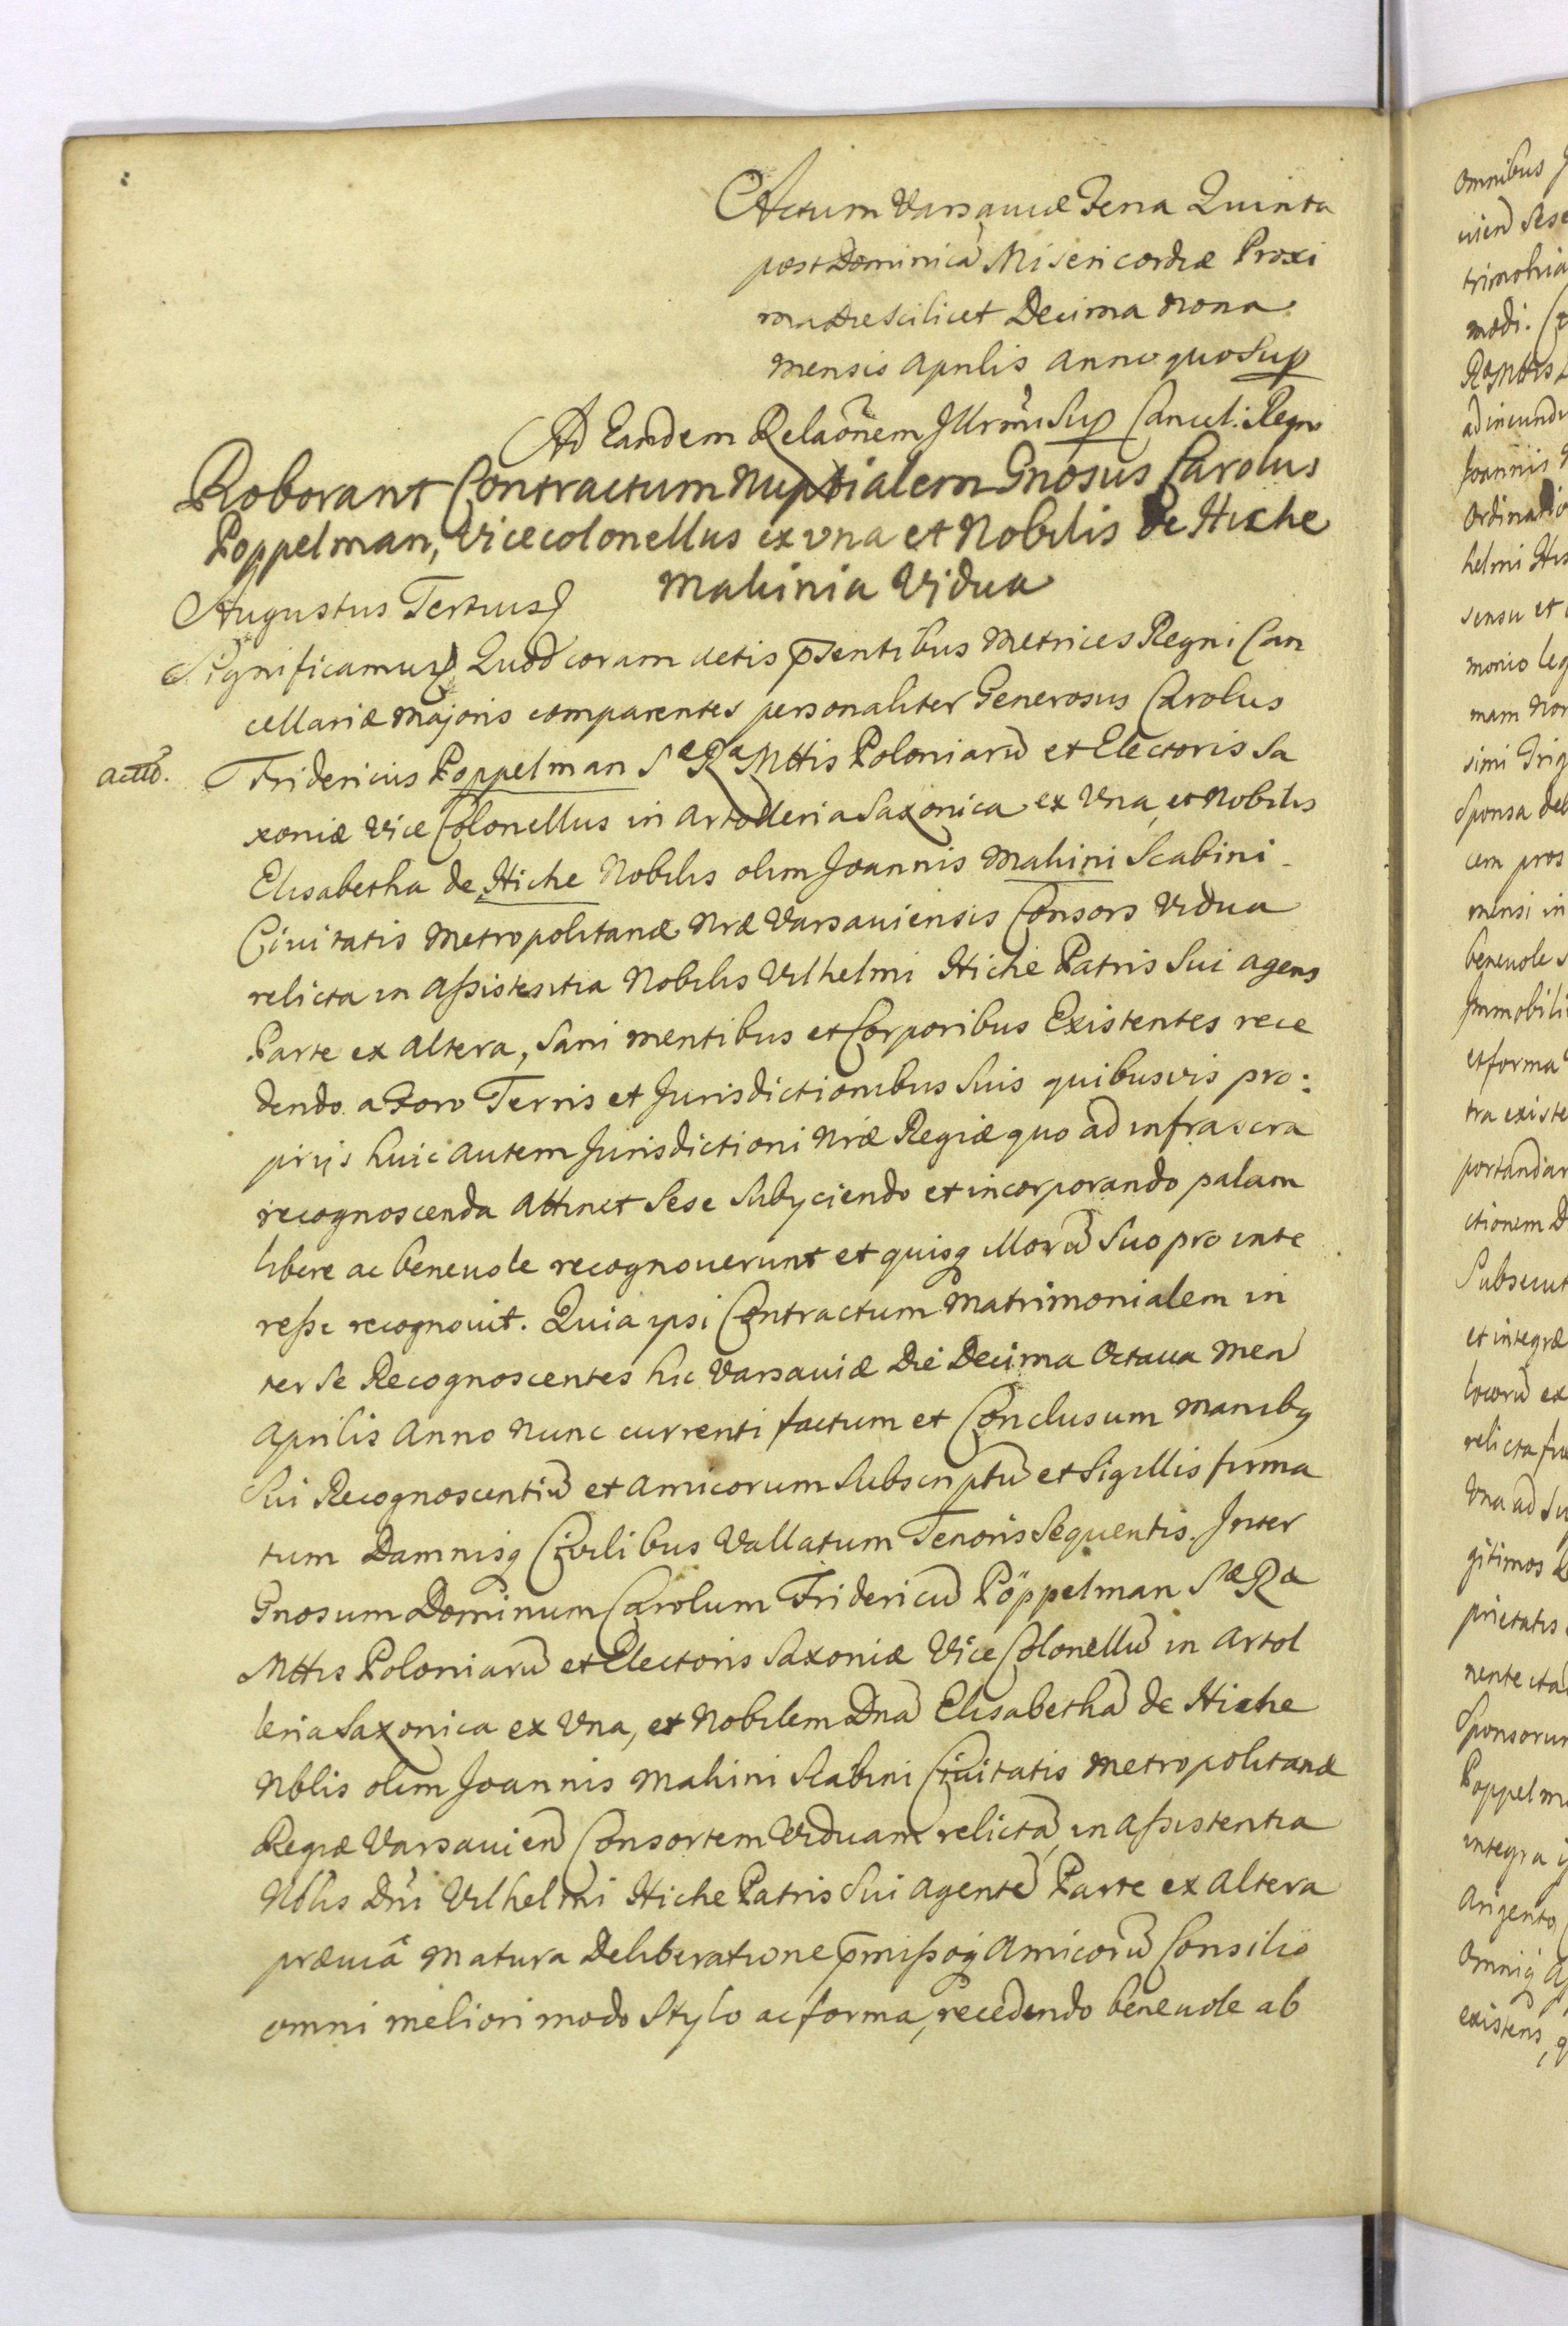 Actum Varsauiæ Feria Quinta
post Dominicã Misericordiæ Proxi
ma die scilicet Decima nona
mensis Aprilis anno quo Sup
Ad Eandem Relaõnem Illrmi Sup Cancel: Regni
Roborant Contractum Nuptialem Gnosus Carolus
Poppelman, Vicecolonellus ex vna et Nobilis de Hiche
Mahinia Vidua
Augustus Tertius
Significamus Quod coram actis p̃sentibus Metrices Regni Can
cellariæ Majoris comparentes personaliter Generosus Carolus
actũ.
Fridericus Poppelman Sæ Ræ Mttis Poloniarũ et Electoris Sa
xoniæ Vice Colonellus in Artolleria Saxonica ex Vna, et Nobilis
Elisabetha de Hiche Nobilis olim Joannis Mahini Scabini
Ciuitatis Metropolitanæ Nræ Varsauiensis Consors Vidua
relicta in assistentia Nobilis Vilhelmi Hiche Patris Sui agens
Parte ex altera, Sani mentibus et Corporibus Existentes rece
dendo a Foro Terris et Jurisdictionibus Suis quibusvis pro:
prijs huic autem Jurisdictioni Nræ Regiæ quo ad infrascra
recognoscenda attinet Sese Subyciendo et incorporando palam
libere ac beneuole recognouerunt et quisq illorũ Suo pro inte
resse recognouit. Quia ipsi Contractum Matrimonialem in
ter Se Recognoscentes hic Varsauiæ Die Decima Octaua Men
Aprilis Anno Nunc currenti factum et Conclusum Manibq
Sui Recognoscentiũ et Amicorum Subscriptũ et Sigillis firma
tum Damnisq Civilibus Vallatum Tenoris Sequentis. Inter
Gnosum Dominum Carolum Fridericũ Pöppelman Sæ Ræ
Mttis Poloniarũ et Electoris Saxoniæ Vice Colonellũ in Artol
leria Saxonica ex Vna, et Nobilem Dnã Elisabethã de Hiche
Nblis olim Joannis Mahini Scabini Ciuitatis Metropolitanæ
Regiæ Varsauien Consortem Viduam relictã, in assistentia
Nblis Dni Vilhelmi Hiche Patris Sui agentẽ Parte ex altera
præuiâ Matura Deliberatione p̃missoq Amicorũ Consilio
omni meliori modo Stylo ac forma, recedendo beneuole ab
omnibus
trimonia
modi.
ad ineundũ
Joannis
Ordinatio
helmi
sensu et
monio leg
mam
simi
Sponsa
cem pros
mensi in
beneuole
Immobili
et forma
tra existe
portandar
ctionem
Subsecut
et integræ
locorũ ex
relicta
Vna ad
gitimos
prietatis
nente
Sponsorum
Poppelm
integra
Argento
Omniq
existens,